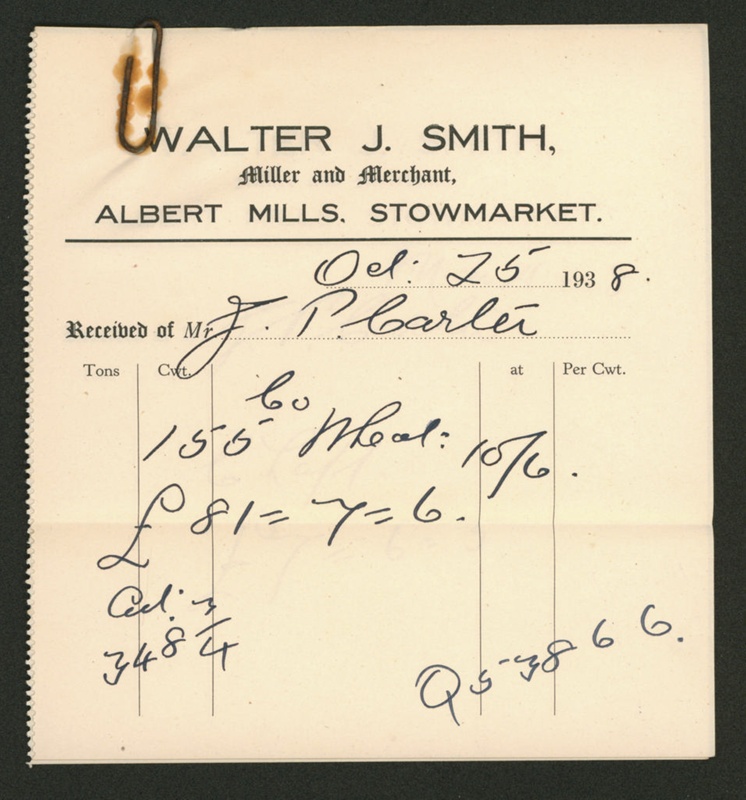 WALTER J. SMITH,
Miller and Merchant,
ALBERT MILLS. STOWMARKET.
Oct: 25 1938.
Received of Mr J. P. Carter
Tons Cwt. at Per Cwt.
Co
155 Wheat: 10/6.
£ 81 = 7 = 6.
348 3/4
Q 53866.